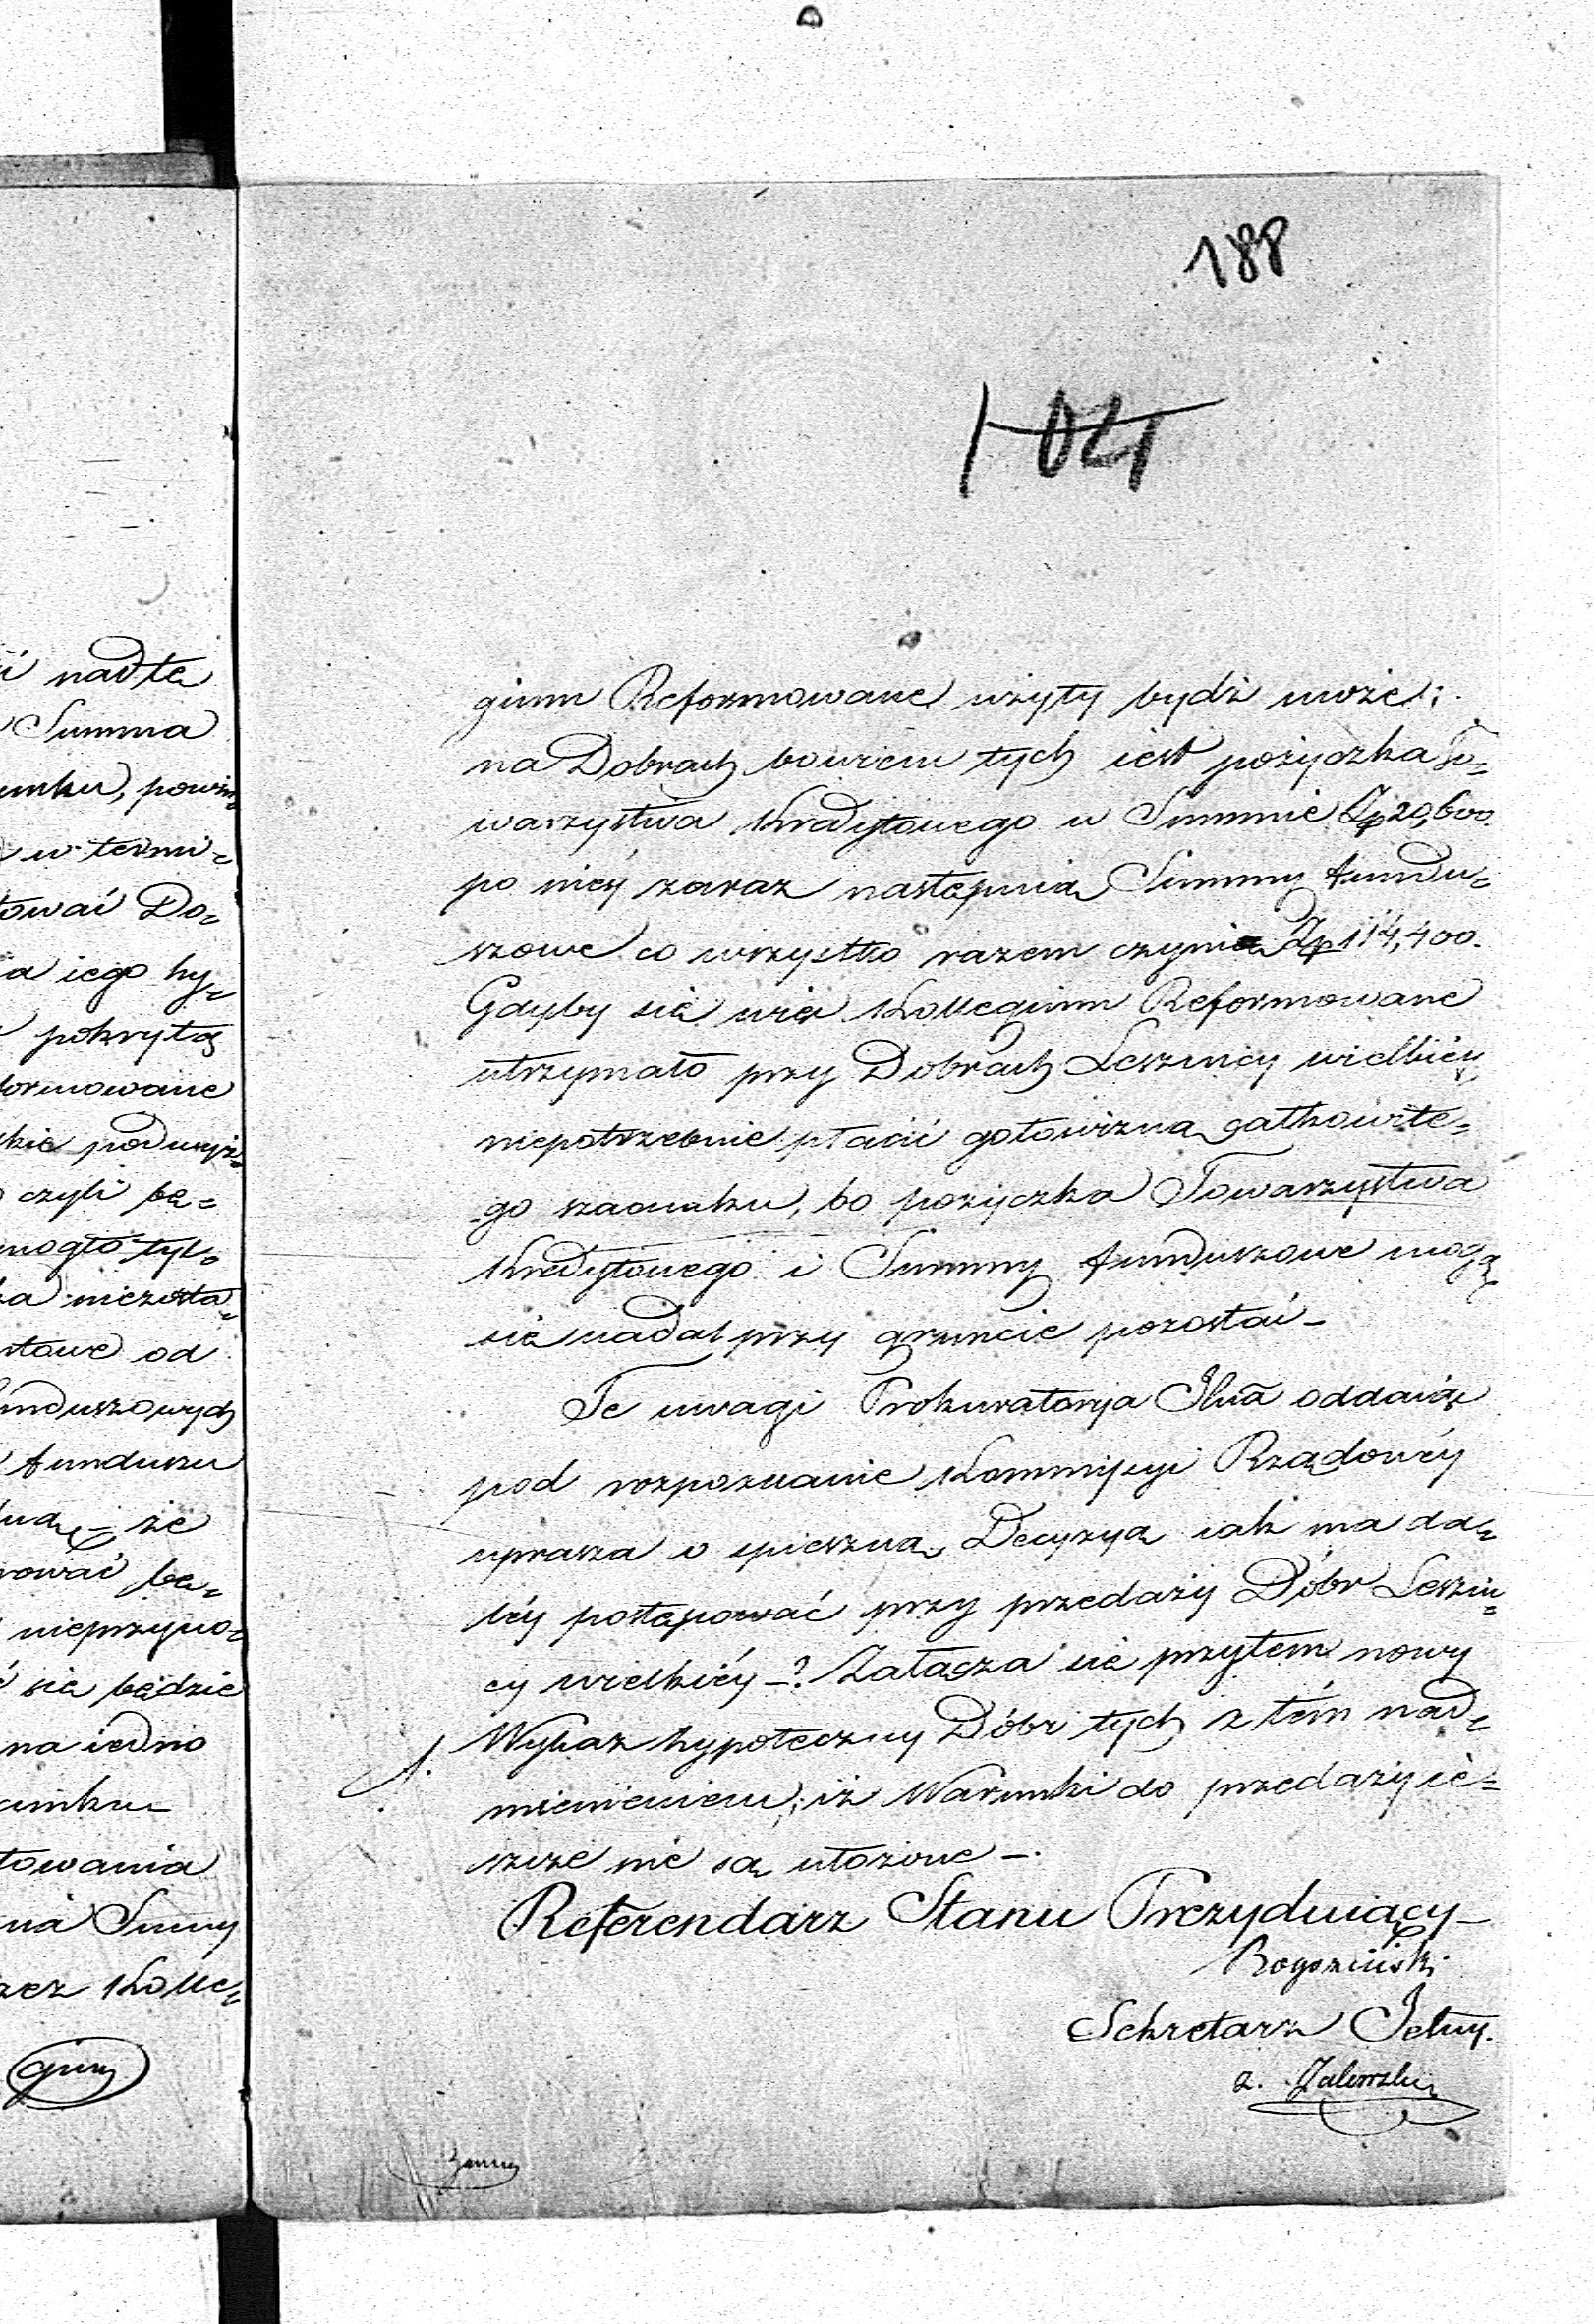 188
ginm Reformowane użyty bydź może;
na Dobrach bowiem tych iest pożyczka To=
warzystwa Kredytowego w Summie Zp 20,600.
po niéy zaraz następuią Summy fundu=
szowe co wszystko razem czynią Zp 114,400.
Gdyby się więc Kollegium Reformowane
utrzymało przy Dobrach Lesznicy wielkiéy
niepotrzebnie płacić gotowizną całkowite=
go szacunku, bo pożyczka Towarzystwa
Kredytowego i Summy funduszowe mogą
się nadal przy gruncie pozostać —
Te uwagi Prokuratorya Jlna oddaiąc
pod rozpoznanie Kommissyi Rządowéy
uprasza o spieszną Decyzyą iak ma da=
léy postępować przy przedaży Dóbr Leszni=
cy wielkiéy —? Załącza się przytem nowy
Wykaz hypoteczny Dóbr tych z tém nad=
mienieniem, iż Warunki do przedaży ie=
szcze nie są ułożone —.
Referendarz Stanu Prezyduiący —
Rogoziński
Sekretarz Jelny.
Zalewski
nadtę
Summa
unku, powin=
w termi=
tować Do=
a iego hy=
pokrytą
formowane
kie podwyż=
czyli bę=
mogło tyl=
za niezosta=
stowe od
funduszowych
funduszu
że
rować bę=
nieprzyno=
się będzie
na iedno
unku —
towania
na Sumy
zez Kolle=
gium